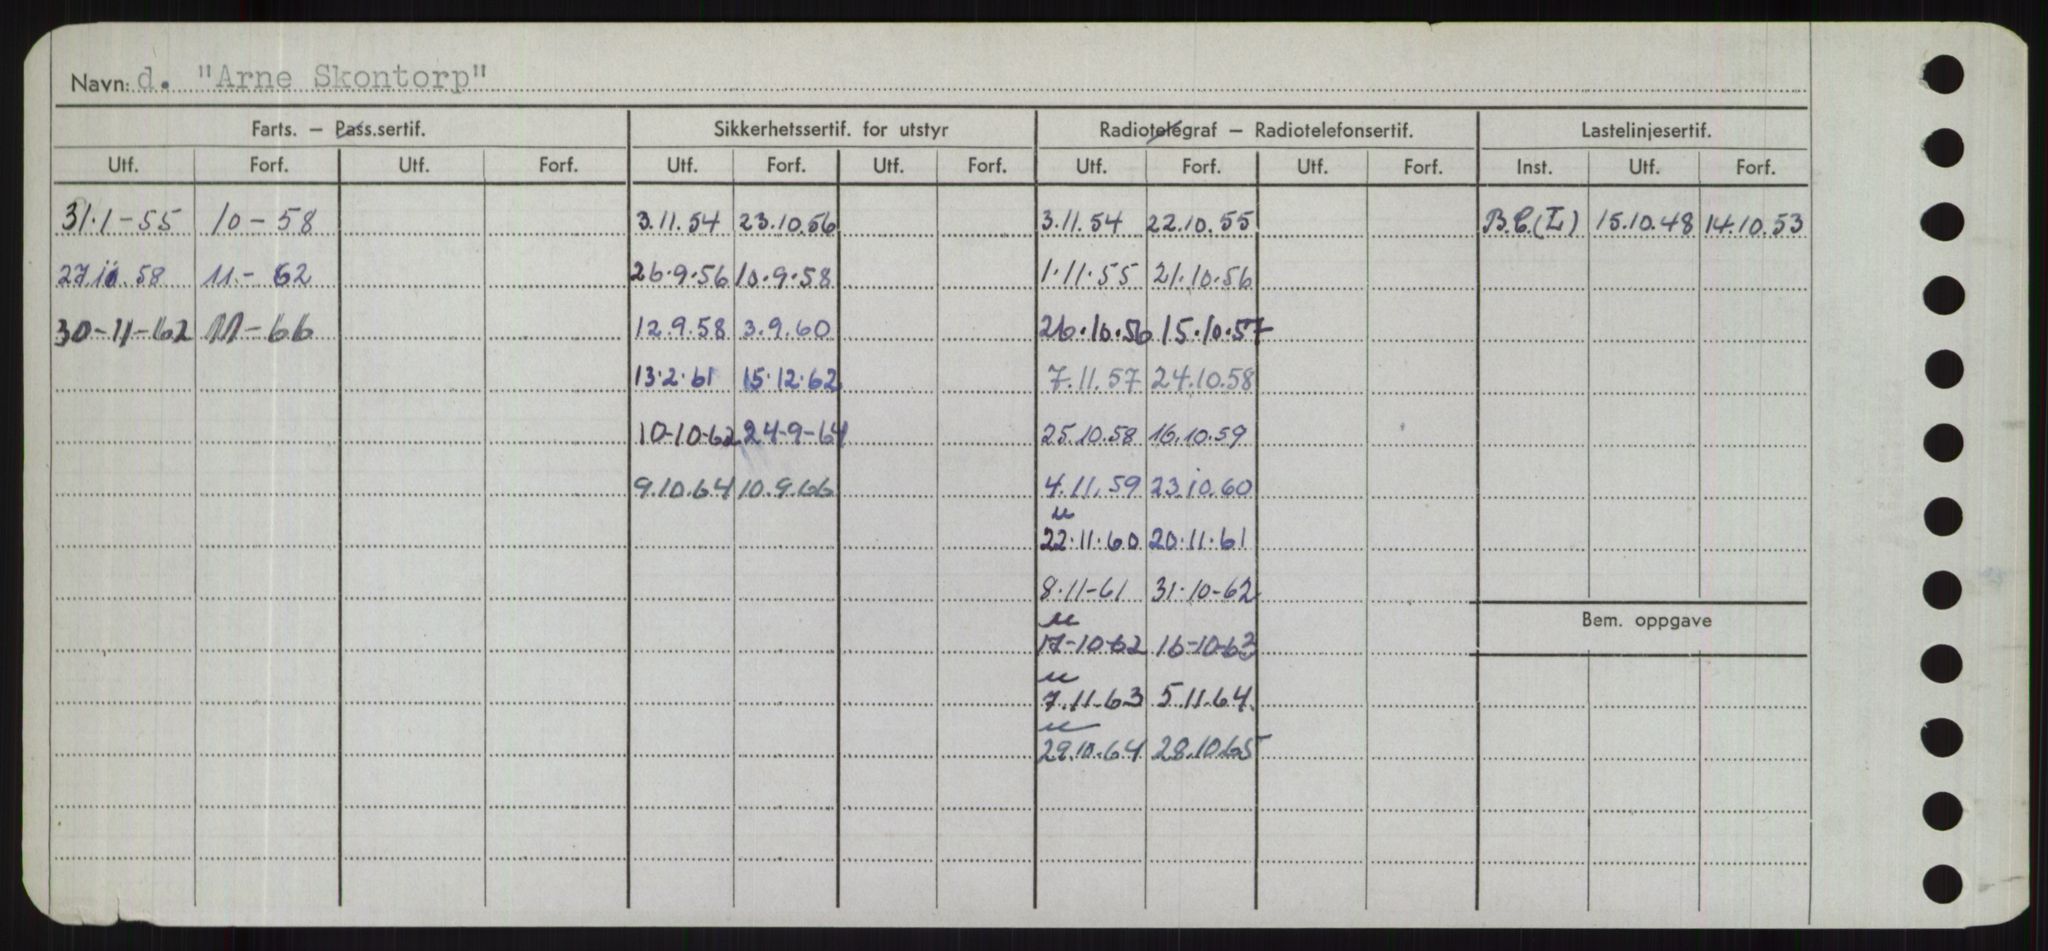 Navn: d. "Arne Skontorp"
Farts. — Pass.sertif. Sikkerhetssertif. for utstyr Radiotelegraf — Radiotelefonsertif. Lastelinjesertif.
Utf. Forf. Utf. Forf. Utf. Forf. Utf. Forf. Utf. Forf. Utf. Forf. Inst. Utf. Forf.
31.1-55 10-58 3.11.54 23.10.56 3.11.54 22.10.55 B.C.(L) 15.10.48 14.10.53
27.10.58 11.-62 26.9.56 10.9.58 1.11.55 21.10.56
30-11-62 11-66 12.9.58 3.9.60 26.10.56 15.10.57
13.2.61 15.12.62 7.11.57 24.10.58
10-10-62 24-9-64 25.10.58 16.10.59
9.10.64 10.9.66 4.11.59 23.10.60
u
22.11.60 20.11.61
8.11-61 31.10-62
Bem. oppgave
u
17-10-62 16-10-63
u
7.11.63 5.11.64
u
29.10.64 28.10.65